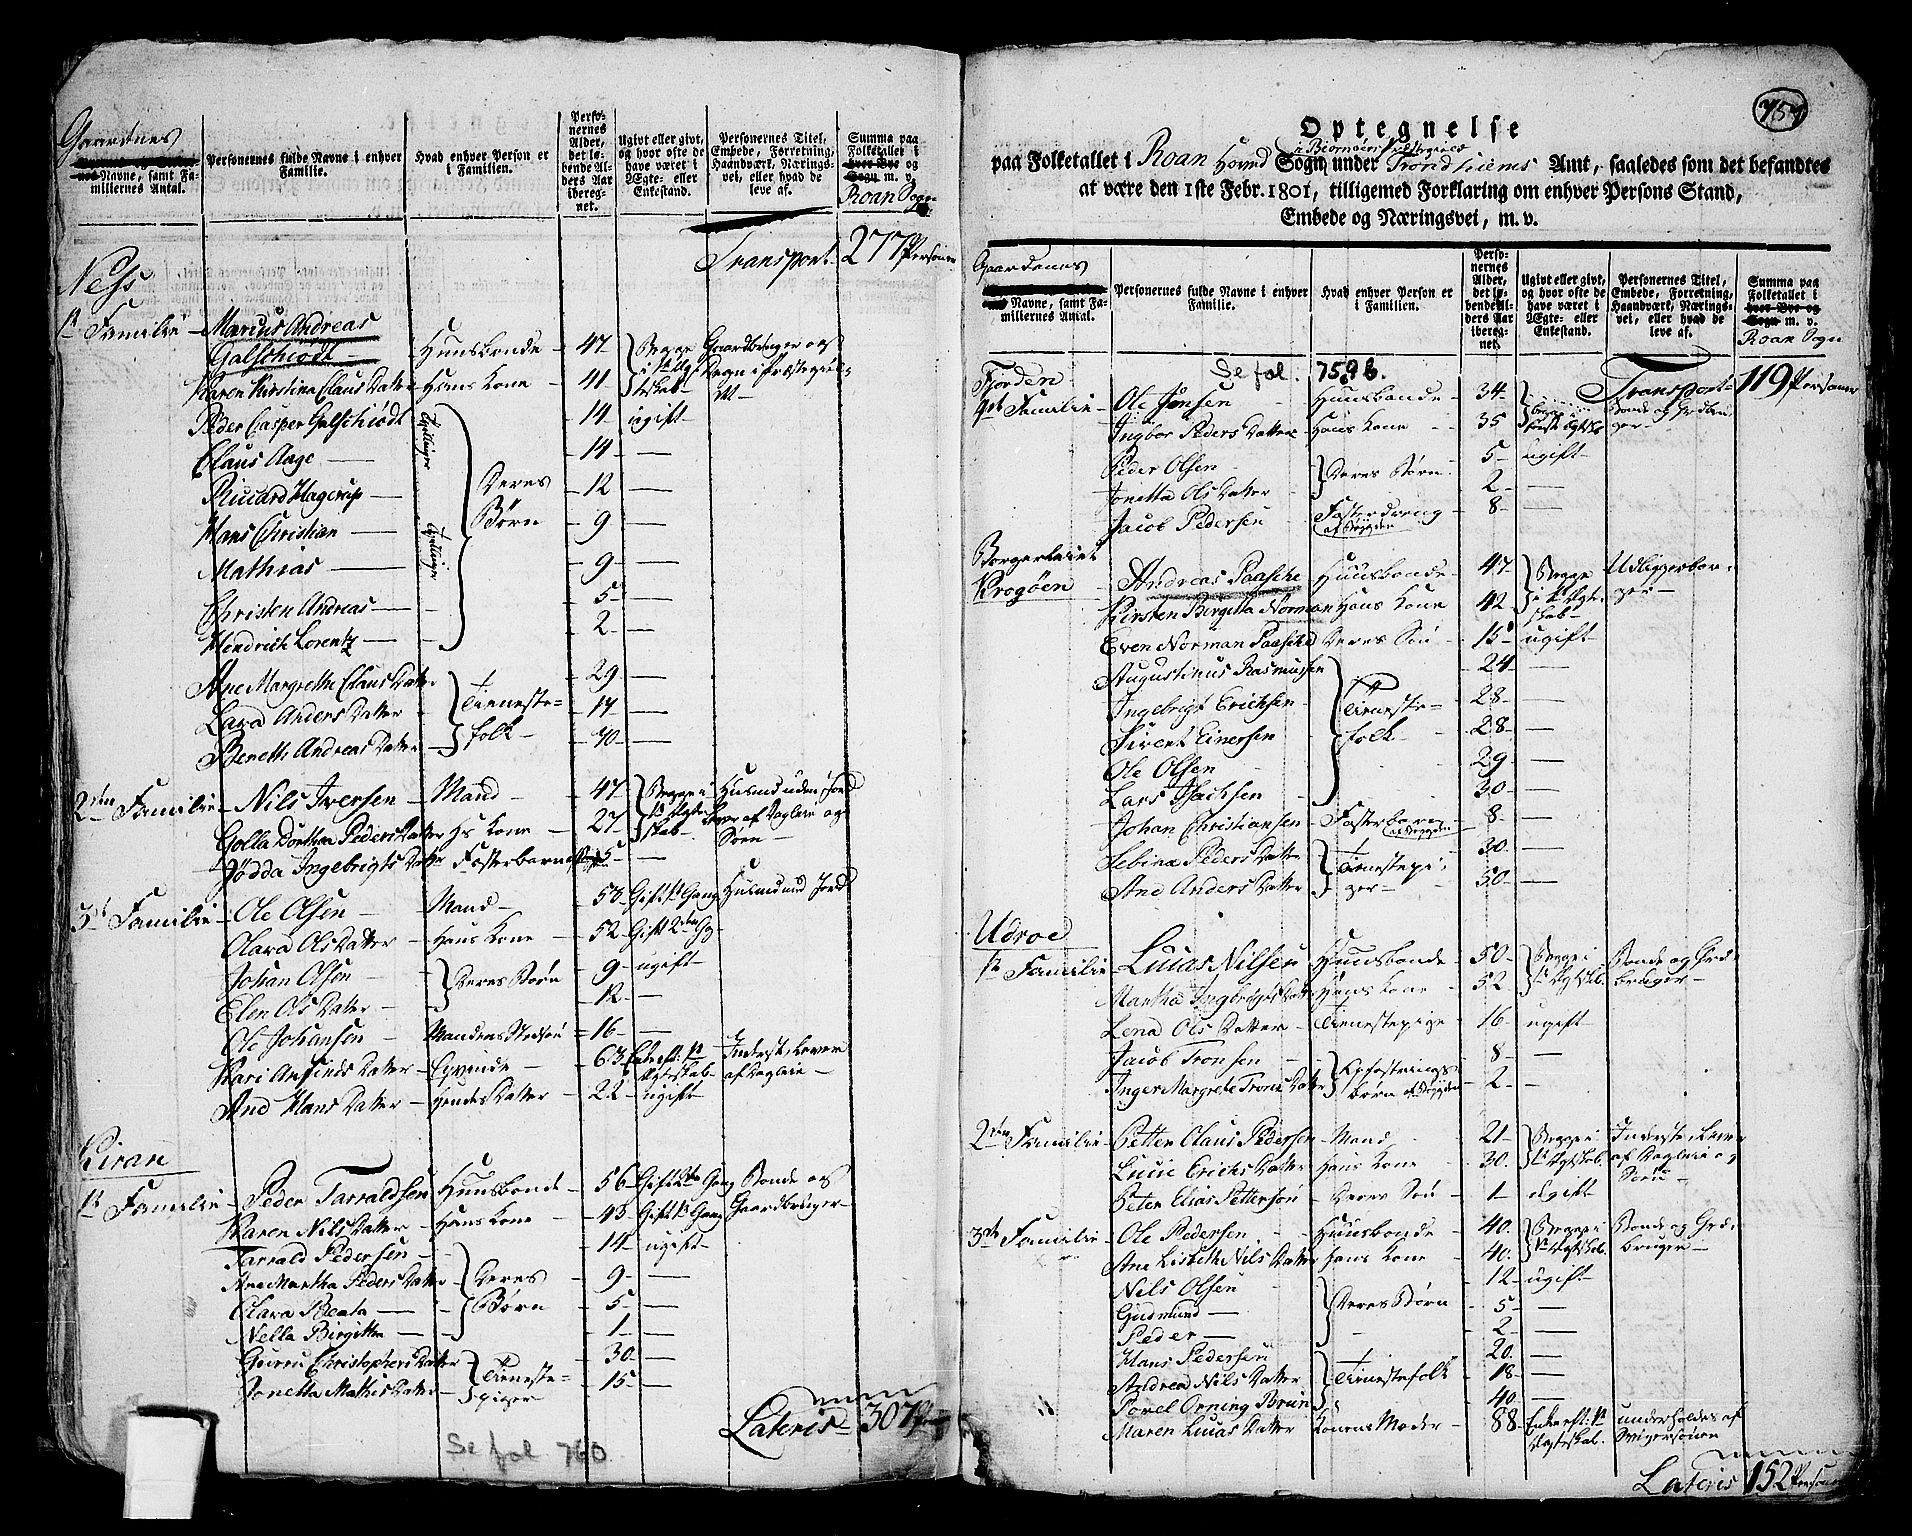 Gaardnes
Navne, samt Fa-
millernes Antal.
Personernes fulde Navne i enhver
Familie.
Hvad enhver Person er
i Familien.
Perso-
nernes
Alder,
det lø-
bende Al-
ders Aar
iberegnet.
Ugivt eller givt,
og hvor ofte de
have været i
Ægte- eller
Enkestand.
Personernes Titel,
Embede, Forretning,
Haandværk, Nærings-
vei, eller hvad de
leve af.
Summa paa
Folketallet i
hver Bye og
Sogn m. v.
Roan Sogn
Transport 277 Personer
Ness
1ste Familie Marcus Andreas
Galschiødt Huusbonde 47 Begge i 1ste Ægteskab Gaardbruger og Degn i
Karen Kirstina ClausDatter Hans Kone 41
Peder Casper Galschiødt Tvillinger 14 ugift
Claus Aage 14 —
Riccard Hagerup Deres Børn 12 —
Hans Christian Tvillinger 9 —
Mathias 9 —
Christen Andreas 5 —
Hendrich Lorentz 2 —
Ane Margrethe ClausDatter Tieneste- folk 29 —
Lara AndersDatter 17 —
Bereth AndreasDatter 40 —
2den Familie Nils Iversen Mand 47 Begge i 1ste Ægteskab Husmd uden Jord Lever af Dagleie og Søen
Golla Dorthea PedersDatter Hs Kone 27
Jødda IngebrigtsDatter Fosterbarn 5 —
3de Familie Ole Olsen Mand 53 Gift 1ste Gang Husmd med Jord
Olava OlsDatter Hans Kone 52 Gift 2den Gg
Johan Olsen Deres Børn 9 ugift
Elen OlsDatter 12 —
Ole Johansen Mandens Stedsøn 16 —
Kari ArfindsDatter Qvinde 63 Enkest: 1ste Ægteskab Inderst, Lever af Dagleie
And HansDatter hendes Datter 22 ugift
Kiran
1ste Familie Peder Tarraldsen Huusbonde 56 Gift 2de Gang Bonde og Gaardbruger
Karen NilsDatter Hans Kone 43 Gift 1ste Gang
Tarrald Pedersen Deres Børn 14 ugift
Ane Martha PedersDatter 9 —
Clara Beata 5 —
Nella Birgitte 1 —
Gurru ChristophersDatter Tieneste- piger 30 —
Jonetta MathisDatter 15 —
Lateris 307
Se fol 760.
757
Optegnelse
paa Folketallet i Roan Hoved Sogn i Biørnøers Præstegield under Trondhiems Amt, saaledes som det befandtes
at være den 1ste Febr. 1801, tilligemed Forklaring om enhver Persons Stand,
Embede og Næringsvei, m. v.
Gaardenes
Navne, samt Fa-
millernes Antal.
Personernes fulde Navne i enhver
Familie.
Hvad enhver Person er
i Familien.
Perso-
nernes
Alder,
det lø-
bende Al-
ders Aar
iberegnet.
Ugivt eller givt,
og hvor ofte de
have været i
Ægte- eller
Enkestand.
Personernes Titel,
Embede, Forretning,
Haandværk, Nærings-
vei, eller hvad de
leve af.
Summa paa
Folketallet i
hver Bye og
Sogn m. v.
Roan Sogn
Se fol. 759b.
Transport 119 Personer
Fjorden
4de Familie Ole Jensen Huusbonde 34 begge i første Ægteskab Bonde og Grdbruger
Ingbor PedersDatter Hans Kone 35
Peder Olsen Deres Børn 5 ugift
Jonetta OlsDatter 2 —
Jacob Pedersen Fosterdreng af Bøgden 8 —
Borgerleiet
Krogøen Andreas Paasche Huusbonde 47 Begge i 1ste Ægteskab Udliggerborger
Kirsten Birgitta Norman Hans Kone 42
Even Norman Paasche Deres Søn 15 ugift
Augustinus Rasmussen Tieneste- folk 24 —
Ingebrigt Erichsen 28 —
Sivert Einersen 28 —
Ole Olsen 29 —
Lars Isachsen 30 —
Johan Christiansen Fosterbarn af Bøgden 8 —
Sebina PedersDatter Tienestepi- ger 30 —
Ane AndersDatter 50 —
Udroe
1ste Familie Lucas Nilsen Huusbonde 50 Begge i 1ste Ægtskb. Bonde og Grd- bruger
Martha IngebrigtsDatter Hans Kone 52
Lena OlsDatter Tienestepige 16 ugift
Jacob Tronsen Opfostrings- børn af Bøgden 8 —
Inger Margrete TronsDatter 2 —
2den Familie Petter Olaus Pedersen Mand 21 Begge i 1ste Ægtskab. Inderste, Lever af Dagleie og Søen
Lucie ErichsDatter Hans Kone 30
Peter Elias Pettersen Deres Søn 1 ugift
3de Familie Ole Pedersen Huusbonde 40 Begge i 1ste Ægtskab. Bonde og Grd- bruger
Ane Lisbeth NilsDatter Hans Kone 40
Nils Olsen Deres Børn 12 ugift
Gudmund 5 —
Peder 2 —
Hans Pedersen Tienestefolk 20 —
Andrea NilsDatter 18 —
Povel Orning Bruun 40 —
Maren LucasDatter Konens Moder 88 Enkest: 1ste Ægteskab. underholdes af Svigersønen
Lateris 152 Personer